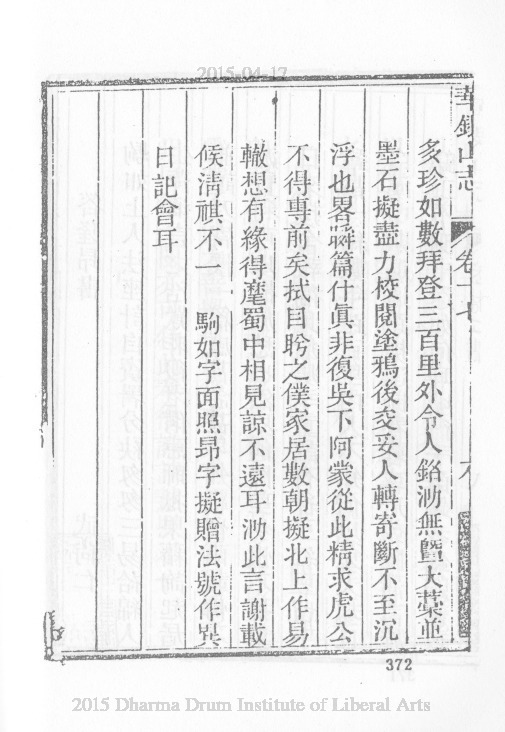 2015-04-17
華銀山志
卷十七
六
多珍如數拜登三百里外令人銘泐無曁大藁並
墨石擬盡力校閱塗鴉後交妥人轉寄斷不至沉
浮也畧瞬篇什眞非復吳下阿蒙從此精求虎公
不得專前矣拭目盻之僕家居數朝擬北上作易
轍想有緣得麾蜀中相見諒不遠耳泐此言謝載
候淸祺不一 駒如字面照昻字擬贈法號作異
日記會耳
372
2015 Dharma Drum Institute of Liberal Arts